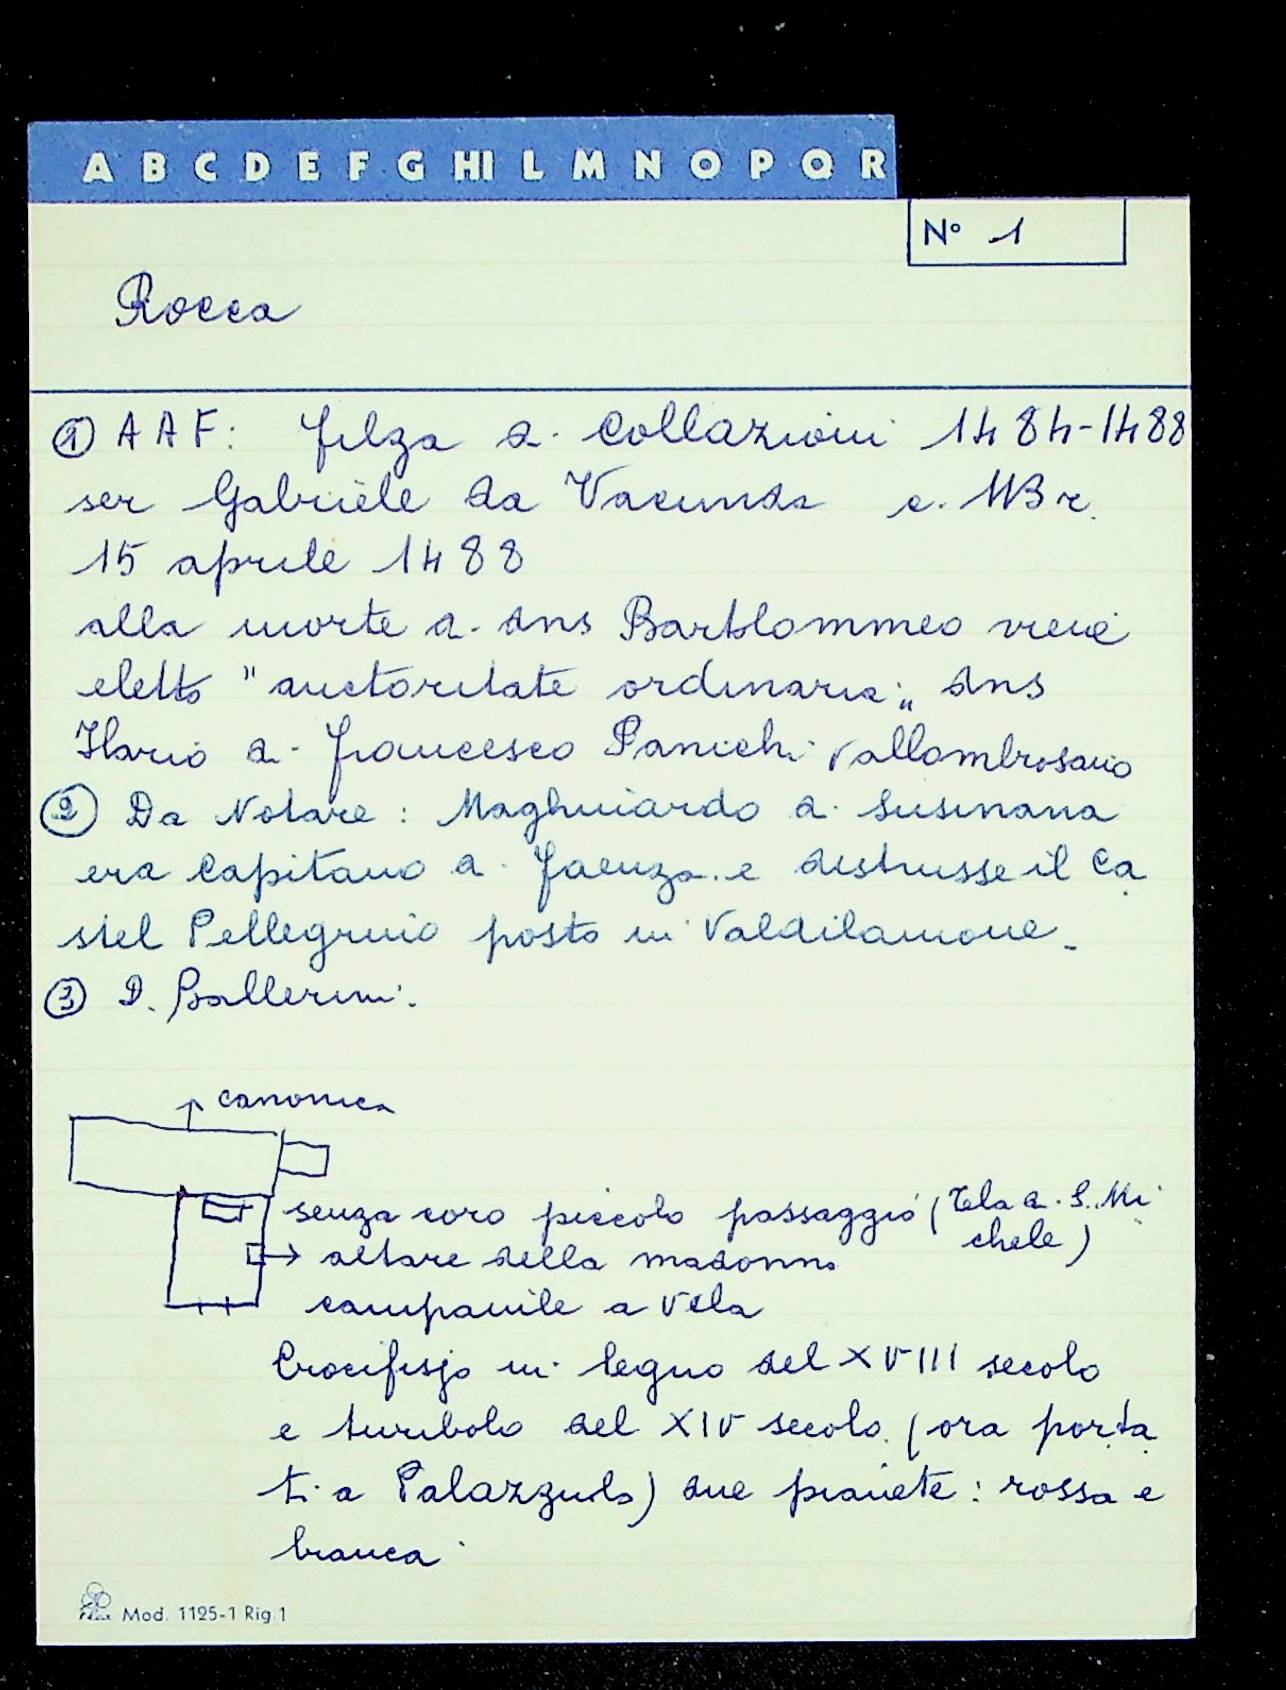 A B C D E F G HI L M N O P Q R
N° 1
Rocca
① AAF: filza di collazioni 1484-1488
ser Gabriele da c.
15 aprile 1488
alla morte di dno Bartolommeo viene
eletto "auctoritate ordinaria" dno
Ilario di Francesco Panichi vallombrosano
② Da Notare: Maghinardo di Susinana
era Capitano di Faenza e distrusse il Ca
stel Pellegrino posto in Valdilamone.
③ D. Ballerini.
canonica
senza coro piccolo passaggio (Tela di S. Mi
chele)
altare della madonna
campanile a vela
Crocifisso in legno del XVIII secolo
e turibolo del XIV secolo (ora porta
ti a Palazzuolo) due pianete: rossa e
bianca
Mod. 1125-1 Rig.1